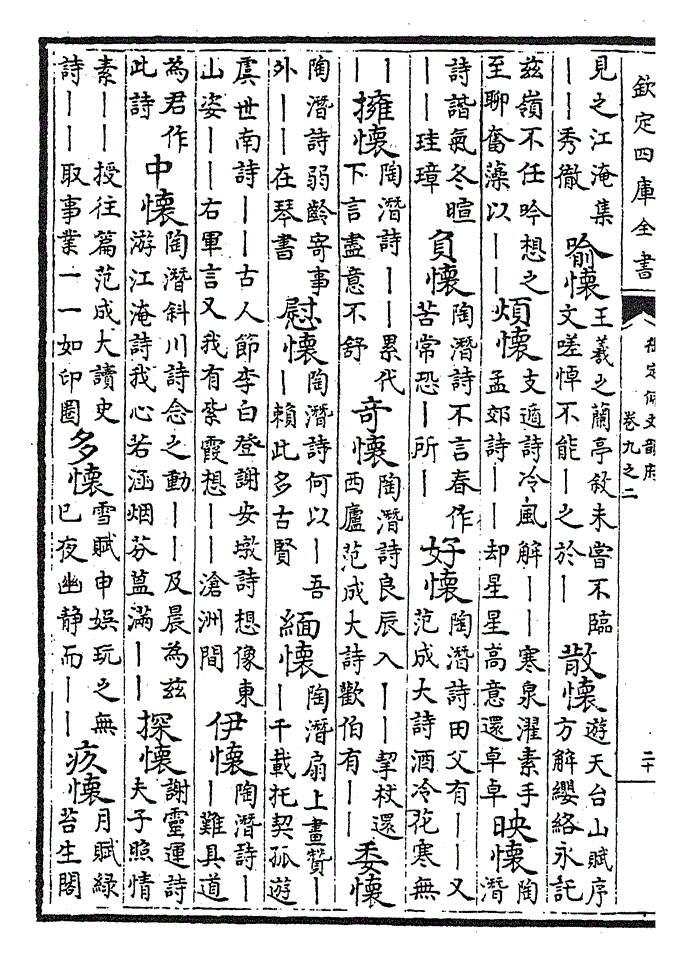 欽定四庫全書
御定佩文韻府
卷九之二
二十
見之江淹集
——秀徹
喻懷
王羲之蘭亭敘未嘗不臨
文嗟悼不能—之於—
散懷
遊天台山賦序
方解纓絡永託
茲嶺不任吟想之
至聊奮藻以——
煩懷
支遁詩冷風解——寒泉濯素手
孟郊詩——却星星高意還卓卓
映懷
陶
潛
詩諧氣冬暄
——珪璋
負懷
陶潛詩不言春作
苦常恐—所—
好懷
陶潛詩田父有——又
范成大詩酒冷花寒無
——
擁懷
陶潛詩——累代
下言盡意不舒
奇懷
陶潛詩良辰入——挈杖還
西廬范成大詩歡伯有——
委懷
陶潛詩弱齡寄事
外——在琴書
慰懷
陶潛詩何以—吾
—賴此多古賢
緬懷
陶潛扇上畫贊—
—千載托契孤遊
虞世南詩——古人節李白登謝安墩詩想像東
山姿——右軍言又我有紫霞想——滄洲間
伊懷
陶潛詩—
—難具道
為君作
此詩
中懷
陶潛斜川詩念之動——及晨為茲
游江淹詩我心若涵烟芬葢滿——
探懷
謝靈運詩
夫子照情
素——授往篇范成大讀史
詩——取事業一一如印圈
多懷
雪賦申娱玩之無
已夜幽静而——
疚懷
月賦綠
苔生閣